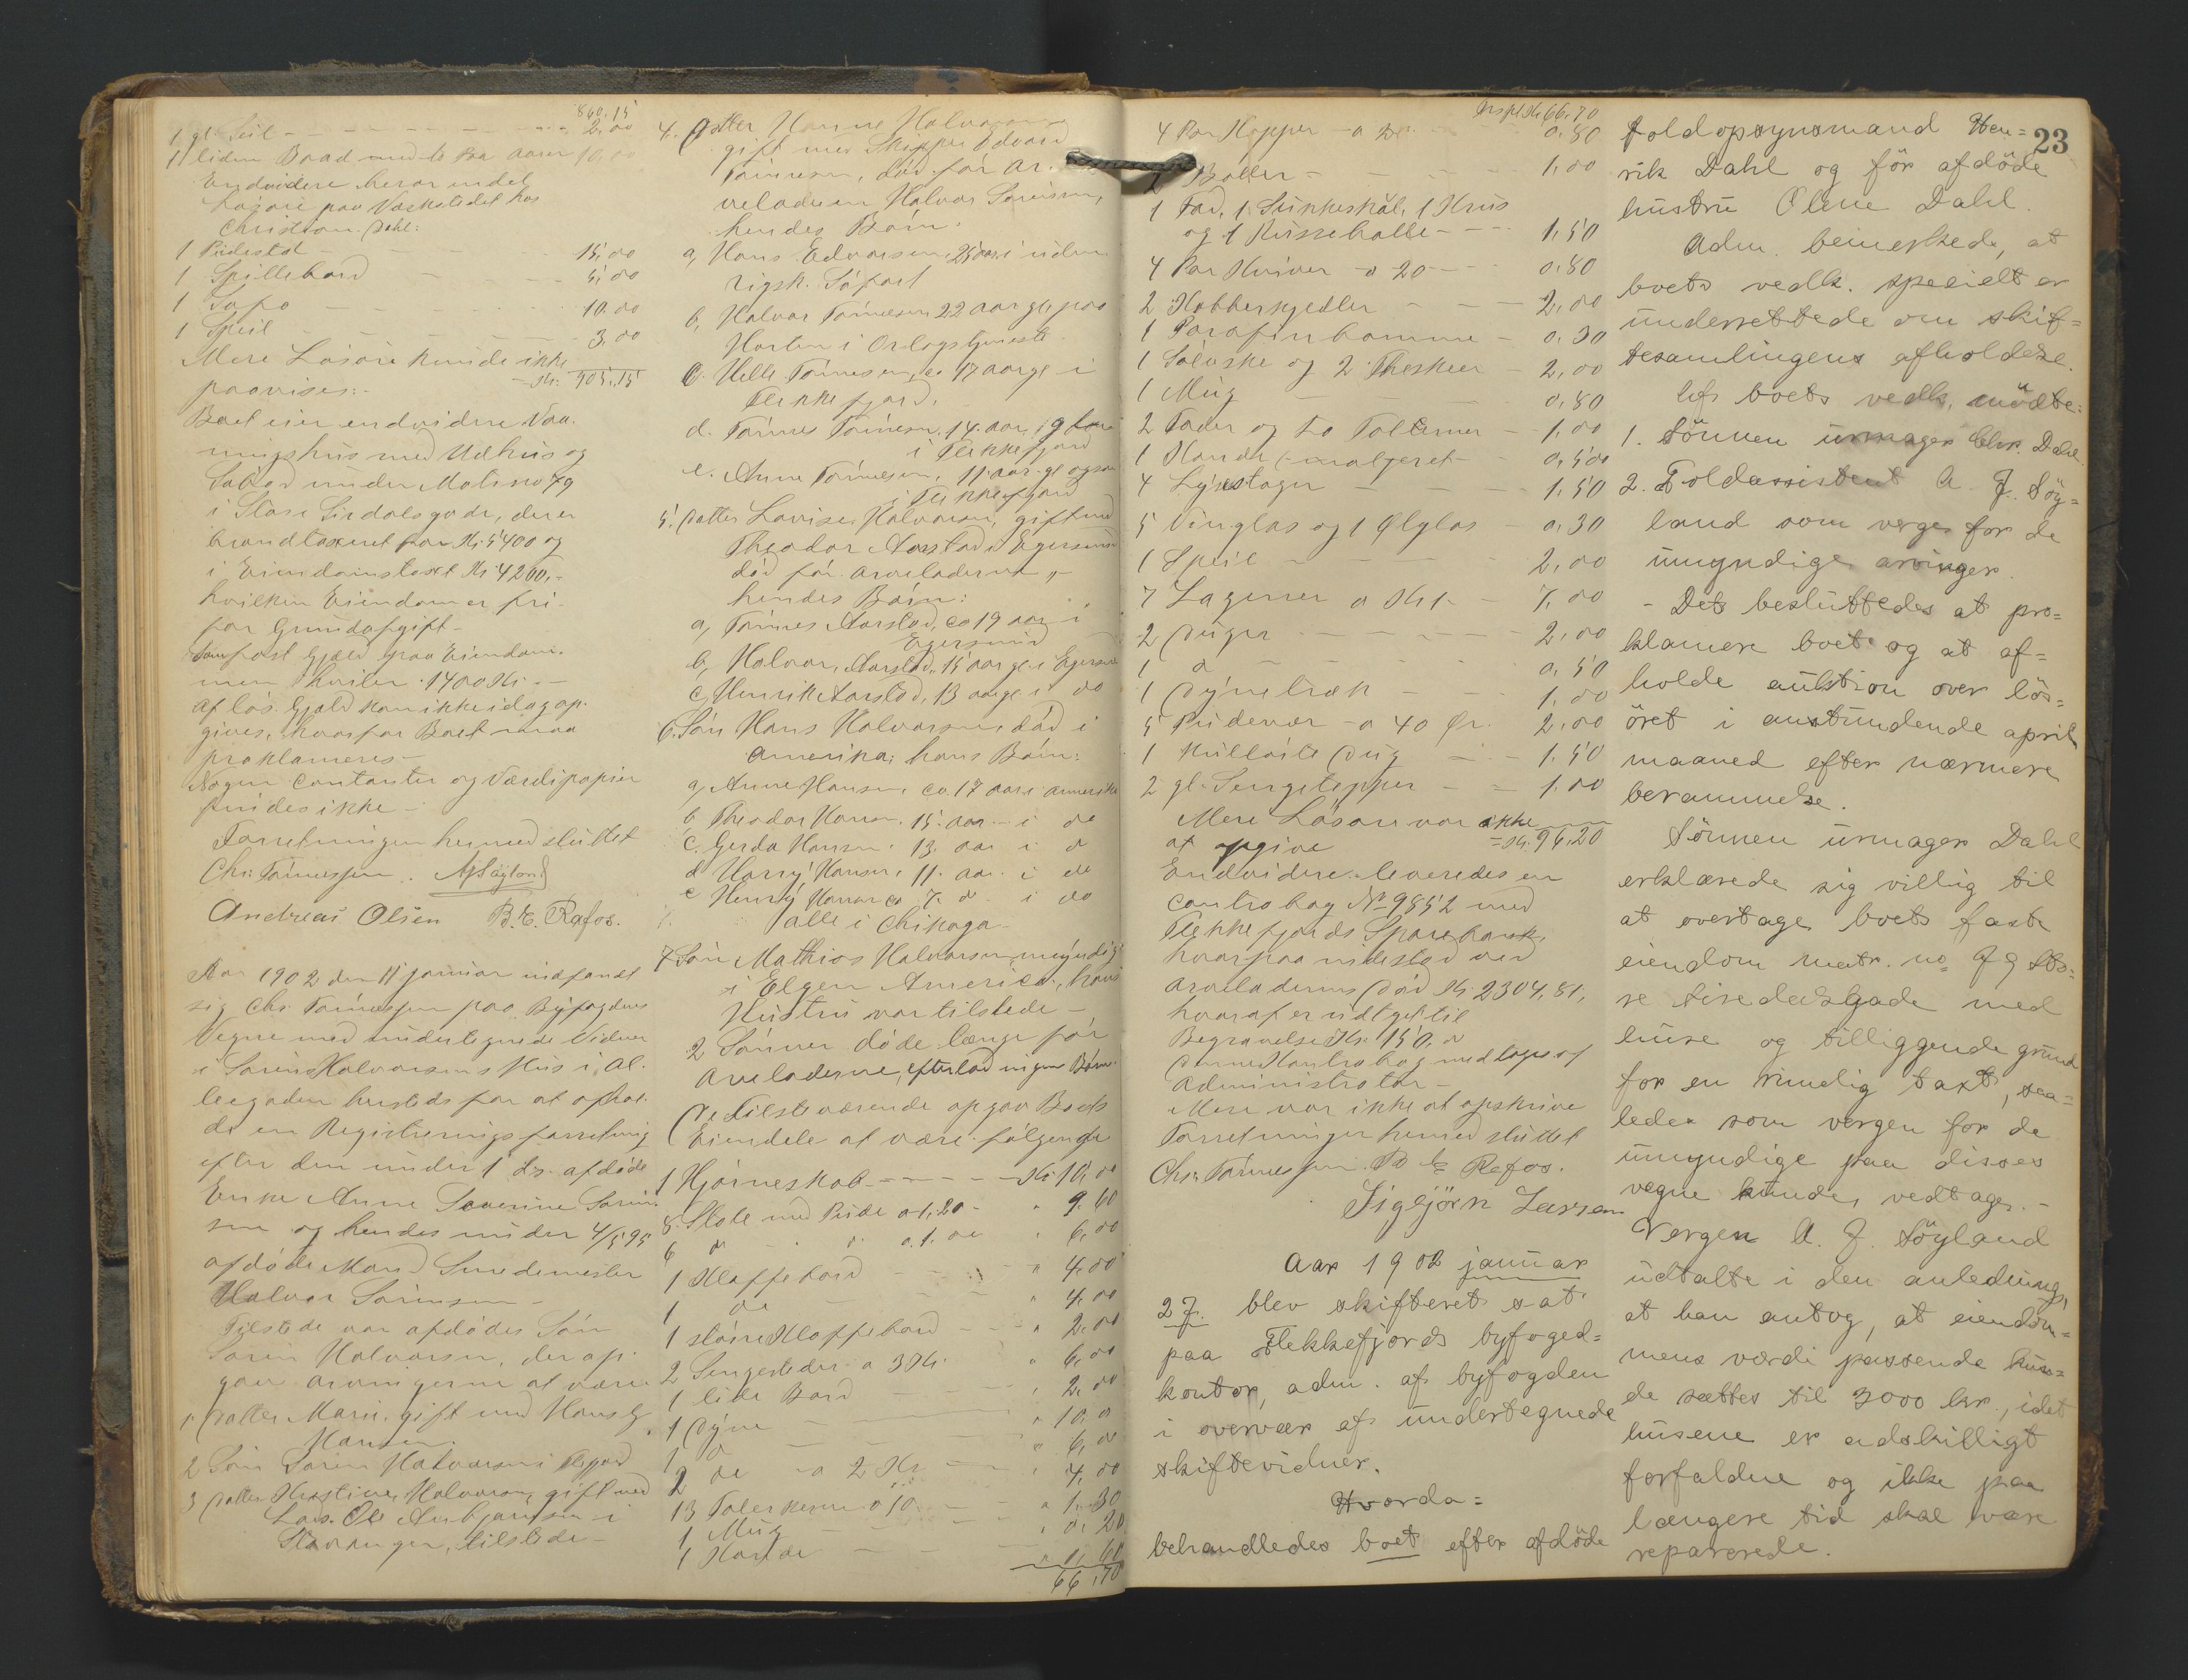 860.15
1 gl. Seil - - - 2,00
1 liden Baad med to Par Aarer 10,00
Endvidere heraf en del
Løsøre paa Værkstedet hos
Christian Dahl:
1 Pidestal - - 15,00
1 Spillebord - 5,00
1 Sofa - - - 10.00
1 Speil - - - 3,00
Mere Løsøre kunde ikke
paavises:- - Kr. 905,15
Boet eier endvidere Vaa-
ningshus med Udhus og
Søbod under Matr no 79
i Store Sirdalsgade, der er
brandtaxeret for Kr. 5400 og
i Eiendomstaxt Kr 4200,-
hvilken Eiendom er fri
for Grundafgift-
Som fast Gjæld paa Eiendom-
men hviler 1400 Kr. -
Af løs Gjæld kan ikke idag op-
gives, hvorfor Boet maa
proklameres -
Nogen Contanter og Værdipapirer
findes ikke -
Forretningen hermed sluttet
Chr. Tønnessen. AJSøyland
Andreas Olsen B. E. Rafos.
Aar 1902 den 11 januar indfandt
sig Chr. Tønnessen paa Byfogdens
Vegne med undertegnede Vidner
i Søren Halvorsens Hus i Al-
leegaden husteds for at afhol-
de en Registreringsforretning
efter den under 1 ds. afdøde
Enke Anne Severine Søren-
sen og hendes under 4/5 95
afdøde Mand Smedemester
Halvor Sørensen -
Tilstede var afdødes Søn
Søren Halvorsen, der op-
gav arvingerne at være
1 Datter Marie, gift med Hans
Hansen.
2 Søn Søren Halvorsen i Flefjord
3 Datter Kristine Halvorsen, gift med
Lods. Ole Anbjørnsen i
Stavanger, tilstede -
4. Datter Hanne Halvorsen
gift med Skipper Edvard
Tønnesen, død før ar-
veladeren Halvor Sørensen,
hendes Børn:
a, Hans Edvardsen 25 aar i uden-
rigsk. Søfart
b, Halvor Tønnesen 22 aar gl. paa
Horten i Orlogstjeneste
c. Helle Tønnesen, ca 17 aar gl i
Flekkefjord.
d. Tønnes Tønnesen, 14 aar,
i Flekkefjord
e. Anne Tønnesen, 11 aar gl ogsaa
i Flekkefjord
5. Datter Lovise Halvorsen, gift med
Theodor Aarstad i Egersund
død før arveladerne,-
hendes Børn:
a, Tønnes Aarstad, ca 19 aar i
Egersund
b, Halvor Aarstad, 15 aar gl. i Egersund
c, Henrik Aarstad, 13 aar gl i do
6. Søn Hans Halvorsen, død i
Amerika; hans Børn:
a, Anne Hansen, ca. 17 aar i Amerika
b Theodor Hansen. 15. aar - i do
c. Gerda Hansen. 13. aar i do
d Harry Hansen, 11. aar. i do
e Henry Hansen ca 7. do i do
alle i Chikago -
7 Søn Mathias Halvorsen, myndig
i Elgen America, hans
Hustru var tilstede -
2 Sønner døde længe før
Arveladerne, efterlod ingen Børn.
De Tilstedeværende opgav Boets
Eiendele at være følgende
1 Hjørneskab - - - Kr. 10,00
8. Stole med Pude a 1,20 - " 9.60
6 do - do a. 1. 00 " 6,00
1 Klaffebord - - - " 4,00
1 do - - - " 4,00
1 større Klaffebord - - " 2,00
2 Sengesteder a 3 Kr. " 6,00
1 lide Bord - - - " 2,00
1 Dyne - - - " 10,00
1 do - - - " 6,00
2 do - a 2 Kr. - " 4,00
13 Talerkener a 10 - - " 1.30
1 Mug - - - " 0,20
1 Kande - - - " 1,60
66,70
Trspt. Kr. 66.70
4 Par Kopper - a 20 - 0.80
2 Boller - - - 1,00
1 Fad, 1. Sukkeskål, 1 Krus
og 1 Kussebolle - - - 1,50
4 Par Kniver - a 20 - - 0.80
2 Kobberkjedler - - - 2,00
1 Parafinkanne - - 0.30
1 Søløske og 2 Theskeer - 2,00
1 Mug - - - 0,80
2 Fader og to Tallerner - 1,00
1 Kande (malteret - 0,500
4 Lysestager - - - 1,50
5 Vinglas og 1 Ølglas - 0.30
1 Speil - - - 2,00
7 Lagener a Kr 1 - - 7,00
2 Duger - - - 2,00
1 do - - - 0,50
1 Dynetræk - - - 1,00
5 Pudevar - a 40 Ør. 2,00
1 Kulløite Dug - - - 1.50
2 gl. Sengetepper - - 1.00
Mere Løsøre var ikke
at opgive - Kr. 96,20
Endvidere leveredes en
Contrabog No 9852 med
Flekkefjords Sparebank,
hvorpaa indestod ved
Arveladerens Død Kr. 2304,81,
hvoraf er udtaget til
Begravelse Kr. 150.00
Denne Kontrabog medtoges af
Administrator -
Mere var ikke at opskrive
Forretningen hermed sluttet
Chr. Tønnessen. B E Rafos.
Sigbjørn Larsen
Aar 1902 januar
27. blev skifteret sat
paa Flekkefjords byfoged-
kontor, adm. af byfogden
i overvær af undertegnede
skiftevidner.
Hvorda-
behandledes boet efter afdøde
23
toldopsynsmand Hen-
rik Dahl og før afdøde
hustru Olene Dahl.
Adm. bemerkede, at
boets vedk. specielt er
underrettede om skif-
tesamlingens afholdelse.
Af boets vedk. mødte:
1. Sønnen urmager Chr. Dahl.
2. Toldassistent A. J. Søy-
land som verge for de
umyndige arvinger.
- Det besluttedes at pro-
klamere boet og at af-
holde auktion over løs-
øret i anstundende april
maaned efter nærmere
berammelse.
Sønnen urmager Dahl
erklærede sig villig til
at overtage boets faste
eiendom matr. no 79 Sto-
re Siredalsgade med
huse og tilliggende grund
for en rimelig taxt, saa-
ledes som vergen for de
umyndige paa disses
vegne kunde vedtage. -
Vergen A. J. Søyland
udtalte i den anledning,
at han antog, at eiendom-
mens værdi passende kun-
de sættes til 3000 kr., idet
husene er adskilligt
forfaldne og ikke paa
længere tid skal være
reparerede.